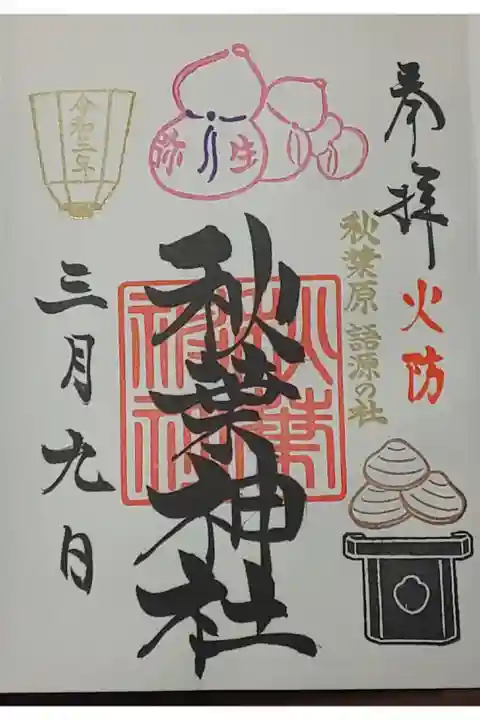 奉拝
火防
秋葉原 語源の社
弥生
秋葉神社
秋葉神社
令和三年
三月九日